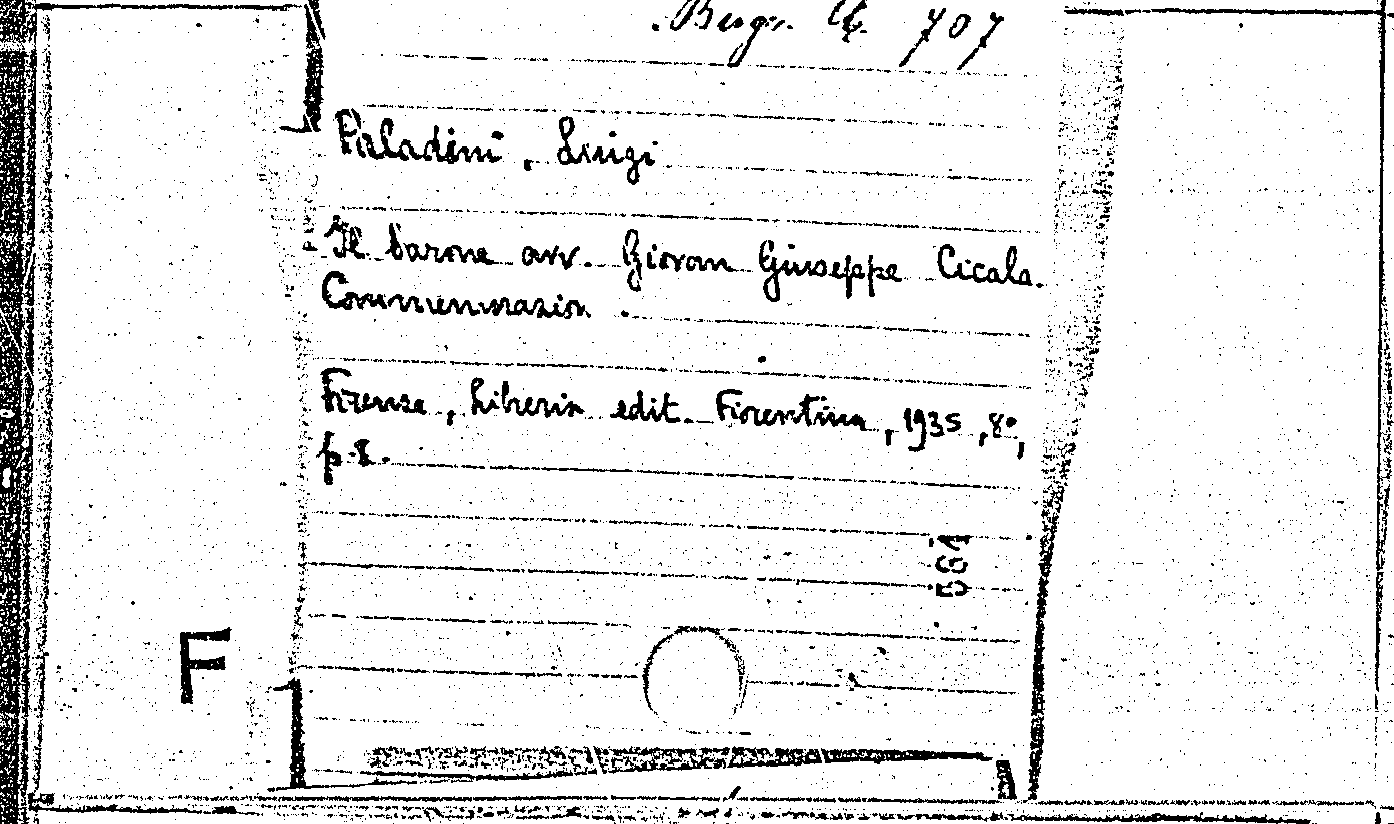 707
Paladini, Luigi
Il barone avv. Giovan Giuseppe Cicala.
Commemorazion.
Firenze, Libreria edit. Fiorentina, 1935, 8°,
p. 8.
561
F